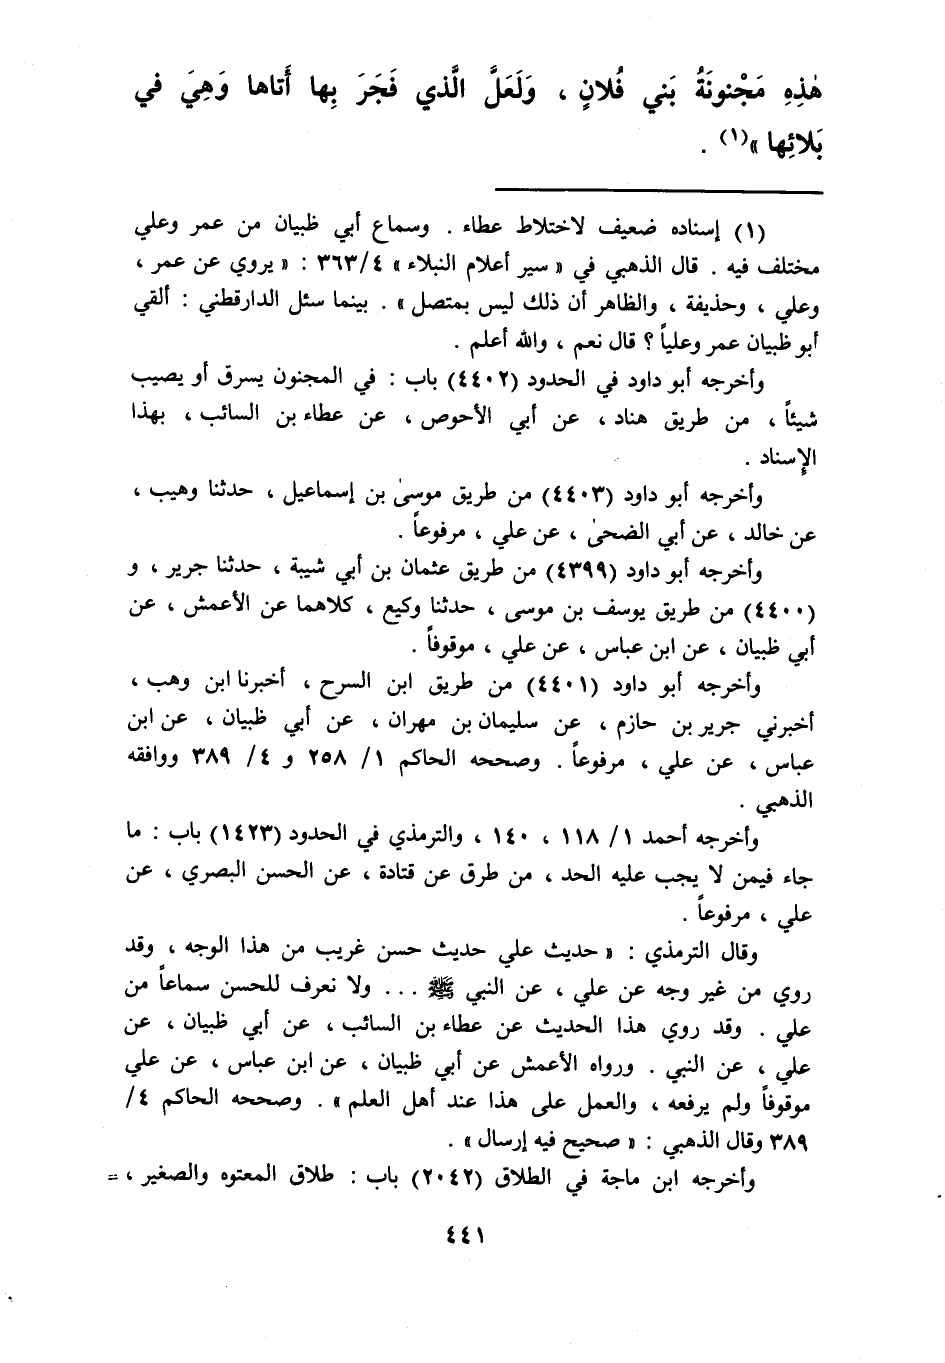 هٰذِهِ مَجْنونَةُ بَني فُلانٍ ، وَلَعَلَّ الَّذي فَجَرَ بِها أَتاها وَهِيَ في
بَلائِها »(١) .
(١) إسناده ضعيف لاختلاط عطاء . وسماع أبي ظبيان من عمر وعلي
مختلف فيه . قال الذهبي في « سير أعلام النبلاء » ٣٦٣/٤ : « يروي عن عمر ،
وعلي ، وحذيفة ، والظاهر أن ذلك ليس بمتصل » . بينما سئل الدارقطني : ألقي
أبو ظبيان عمر وعلياً ؟ قال نعم ، والله أعلم .
وأخرجه أبو داود في الحدود (٤٤٠٢) باب : في المجنون يسرق أو يصيب
شيئاً ، من طريق هناد ، عن أبي الأحوص ، عن عطاء بن السائب ، بهذا
الإسناد .
وأخرجه أبو داود (٤٤٠٣) من طريق موسىٰ بن إسماعيل ، حدثنا وهيب ،
عن خالد ، عن أبي الضحىٰ ، عن علي ، مرفوعاً .
وأخرجه أبو داود (٤٣٩٩) من طريق عثمان بن أبي شيبة ، حدثنا جرير ، و
(٤٤٠٠) من طريق يوسف بن موسى ، حدثنا وكيع ، كلاهما عن الأعمش ، عن
أبي ظبيان ، عن ابن عباس ، عن علي ، موقوفاً .
وأخرجه أبو داود (٤٤٠١) من طريق ابن السرح ، أخبرنا ابن وهب ،
أخبرني جرير بن حازم ، عن سليمان بن مهران ، عن أبي ظبيان ، عن ابن
عباس ، عن علي ، مرفوعاً . وصححه الحاكم ١/ ٢٥٨ و ٤/ ٣٨٩ ووافقه
الذهبي .
وأخرجه أحمد ١/ ١١٨ ، ١٤٠ ، والترمذي في الحدود (١٤٢٣) باب : ما
جاء فيمن لا يجب عليه الحد ، من طرق عن قتادة ، عن الحسن البصري ، عن
علي ، مرفوعاً .
وقال الترمذي : « حديث علي حديث حسن غريب من هذا الوجه ، وقد
روي من غير وجه عن علي ، عن النبي ﷺ ... ولا نعرف للحسن سماعاً من
علي . وقد روي هذا الحديث عن عطاء بن السائب ، عن أبي ظبيان ، عن
علي ، عن النبي . ورواه الأعمش عن أبي ظبيان ، عن ابن عباس ، عن علي
موقوفاً ولم يرفعه ، والعمل على هذا عند أهل العلم » . وصححه الحاكم ٤/
٣٨٩ وقال الذهبي : « صحيح فيه إرسال » .
وأخرجه ابن ماجة في الطلاق (٢٠٤٢) باب : طلاق المعتوه والصغير ، =
٤٤١